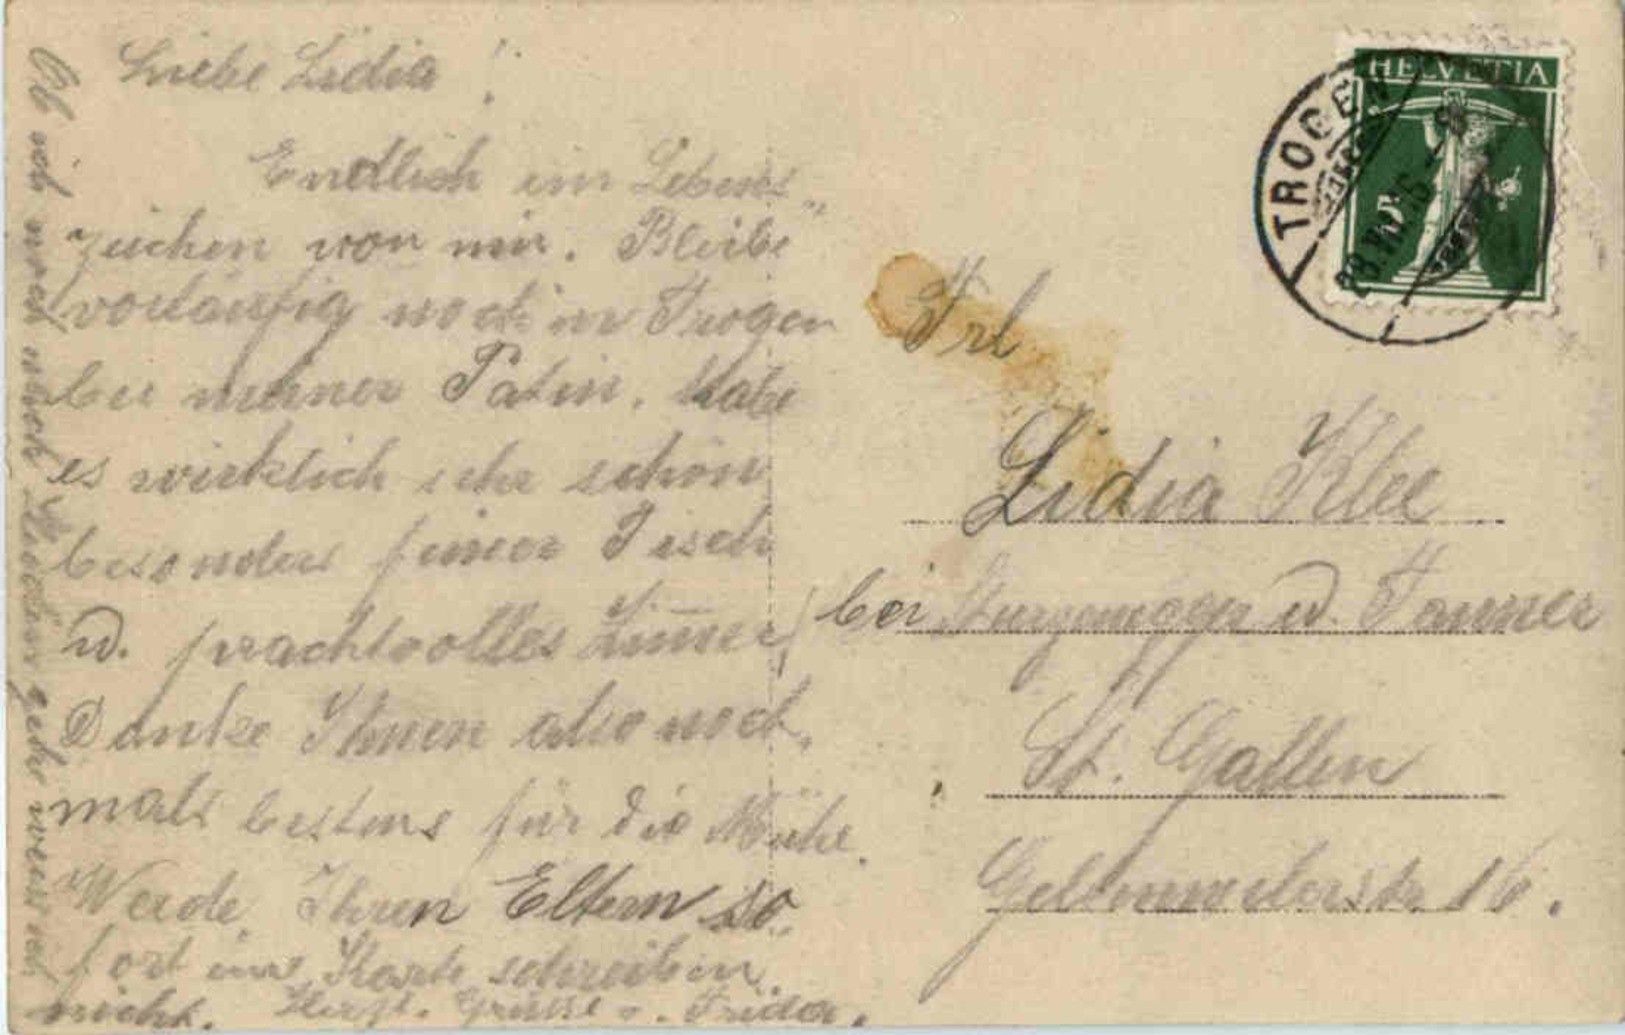 Liebe Lidia!
Endlich ein Lebens„
zeichen von mir. Bleibe
vorläufig noch in Trogen
bei meiner Patin. Habe
es wirklich sehr schön
besonders feiner Tisch
u. prachtvolles Zimmer
Danke Ihnen also noch„
mals bestens für die Mühe.
Werde Ihren Eltern so„
fort eine Karte schreiben
Ob ich noch nach geh weiss ich
nicht. Herzl. Grüsse v. Frieda.
HELVETIA
5
TROGEN
Frl
Lidia Klee
bei u. Tanner
St. Gallen
16.